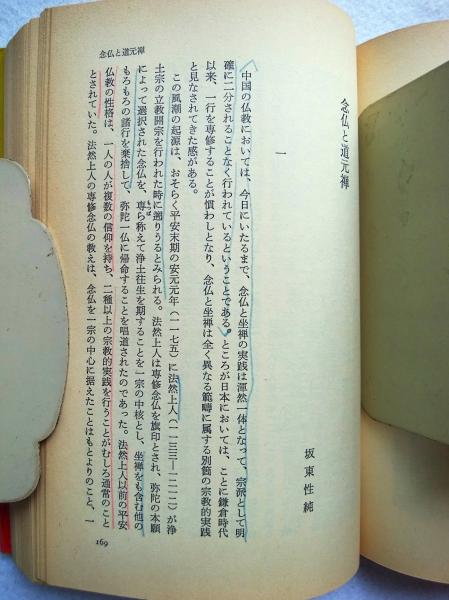 念仏と道元禅
念仏と道元禅
坂東性純
一
中国の仏教においては、今日にいたるまで、念仏と坐禅の実践は渾然一体となって、宗派として明
確に二分されることなく行われているということである。ところが日本においては、ことに鎌倉時代
以来、一行を専修することが慣わしとなり、念仏と坐禅は全く異なる範疇に属する別箇の宗教的実践
と見なされてきた感がある。
この風潮の起源は、おそらく平安末期の安元元年（一一七五）に法然上人（一一三三—一二一二）が浄
土宗の立教開宗を行われた時に遡りうるとみられる。法然上人は専修念仏を旗印とされ、弥陀の本願
によって選択された念仏を、専ら称えて浄土往生を期することを一宗の中核とし、坐禅をも含む他の
もっぱ
もろもろの諸行を棄捨して、弥陀一仏に帰命することを唱道されたのであった。法然上人以前の平安
仏教の性格は、一人の人が複数の信仰を持ち、二種以上の宗教的実践を行うことがむしろ通常のこと
とされていた。法然上人の専修念仏の教えは、念仏を一宗の中心に据えたことはもとよりのこと、一
169